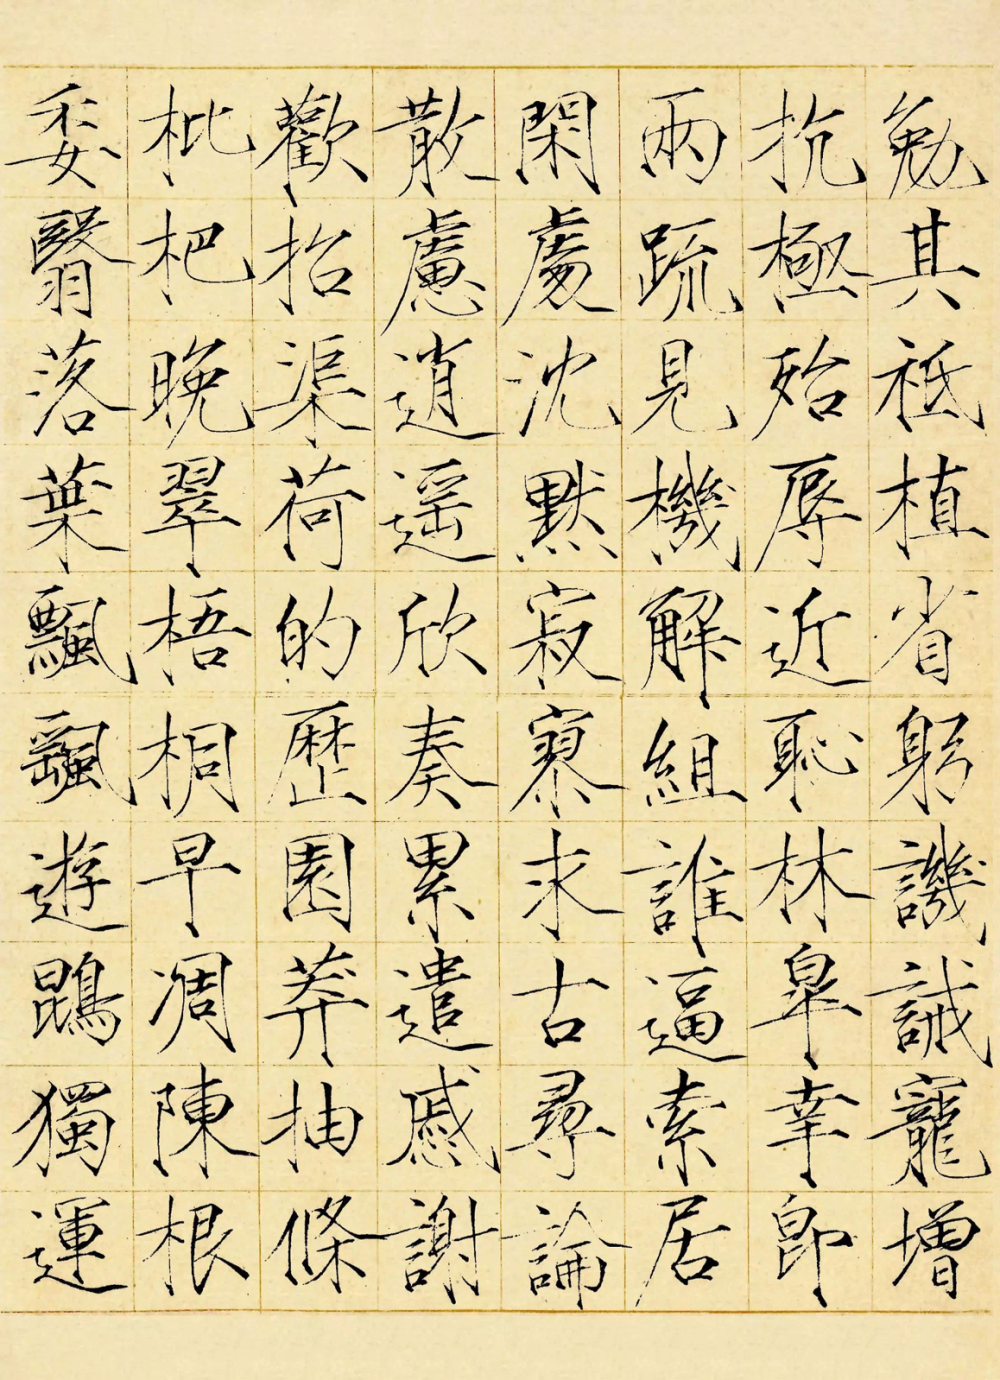 勉其祗植省躬譏誡寵增
抗極殆辱近恥林皋幸即
兩疏見機解組誰逼索居
閑處沈默寂寥求古尋論
散慮逍遙欣奏累遣慼謝
歡招渠荷的歷園莽抽條
枇杷晚翠梧桐早凋陳根
委翳落葉飄颻遊鵾獨運